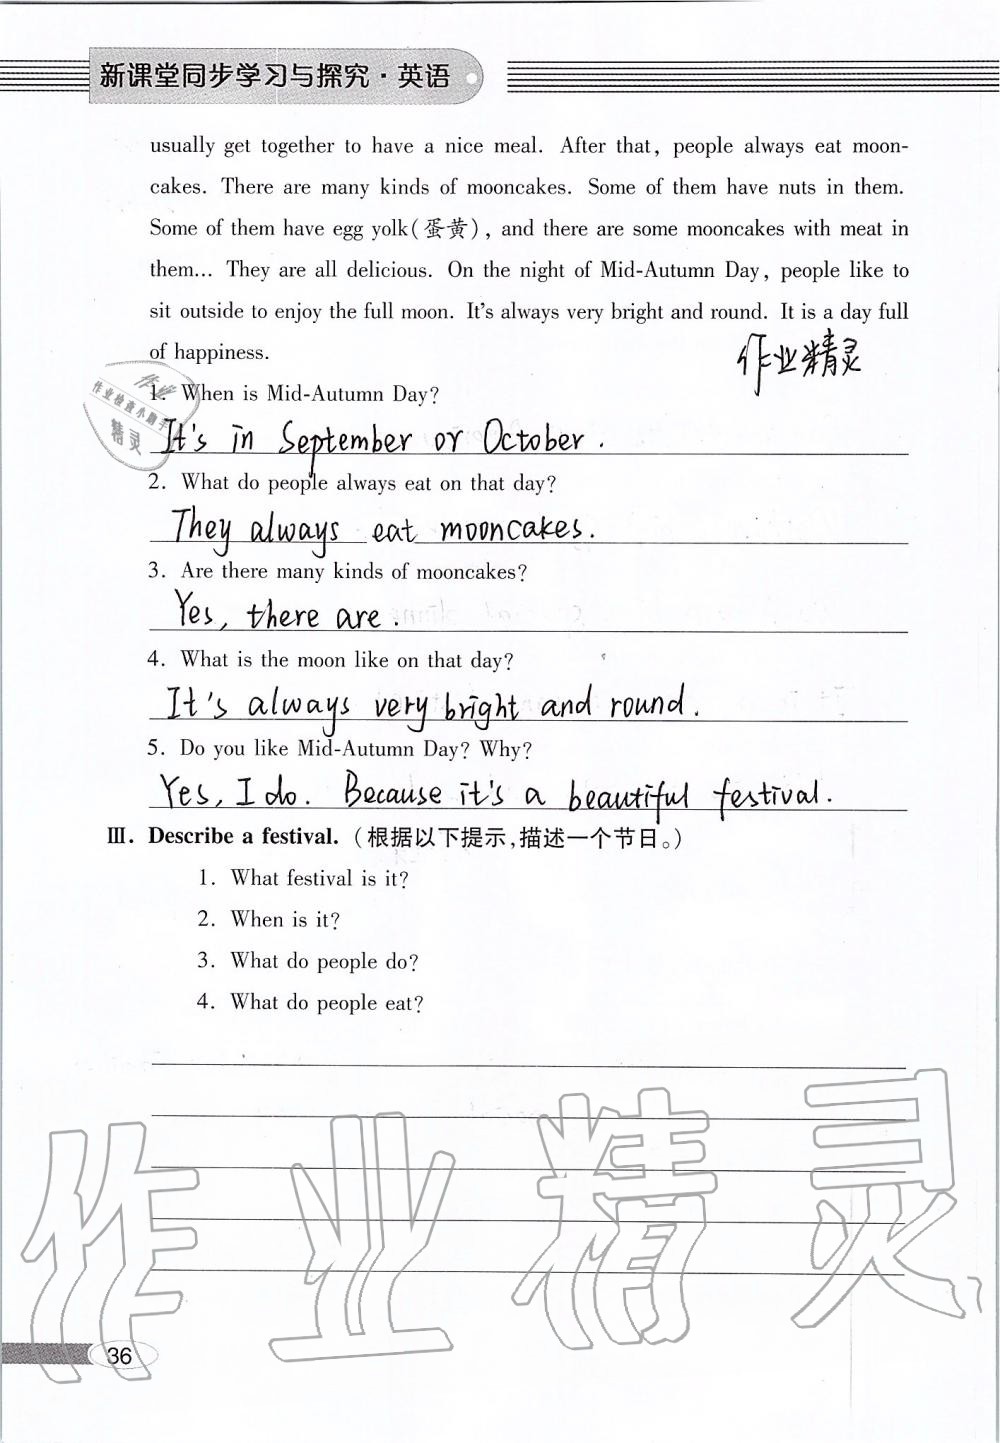 新课堂同步学习与探究·英语
usually get together to have a nice meal. After that, people always eat moon-
cakes. There are many kinds of mooncakes. Some of them have nuts in them.
Some of them have egg yolk(蛋黄), and there are some mooncakes with meat in
them... They are all delicious. On the night of Mid-Autumn Day, people like to
sit outside to enjoy the full moon. It's always very bright and round. It is a day full
of happiness.
作业精灵
1. When is Mid-Autumn Day?
作业
作业检查小助手
精灵
It's in September or October.
2. What do people always eat on that day?
They always eat mooncakes.
3. Are there many kinds of mooncakes?
Yes, there are.
4. What is the moon like on that day?
It's always very bright and round.
5. Do you like Mid-Autumn Day? Why?
Yes, I do. Because it's a beautiful festival.
Ⅲ. Describe a festival. (根据以下提示,描述一个节日。)
1. What festival is it?
2. When is it?
3. What do people do?
4. What do people eat?
作业精灵
36